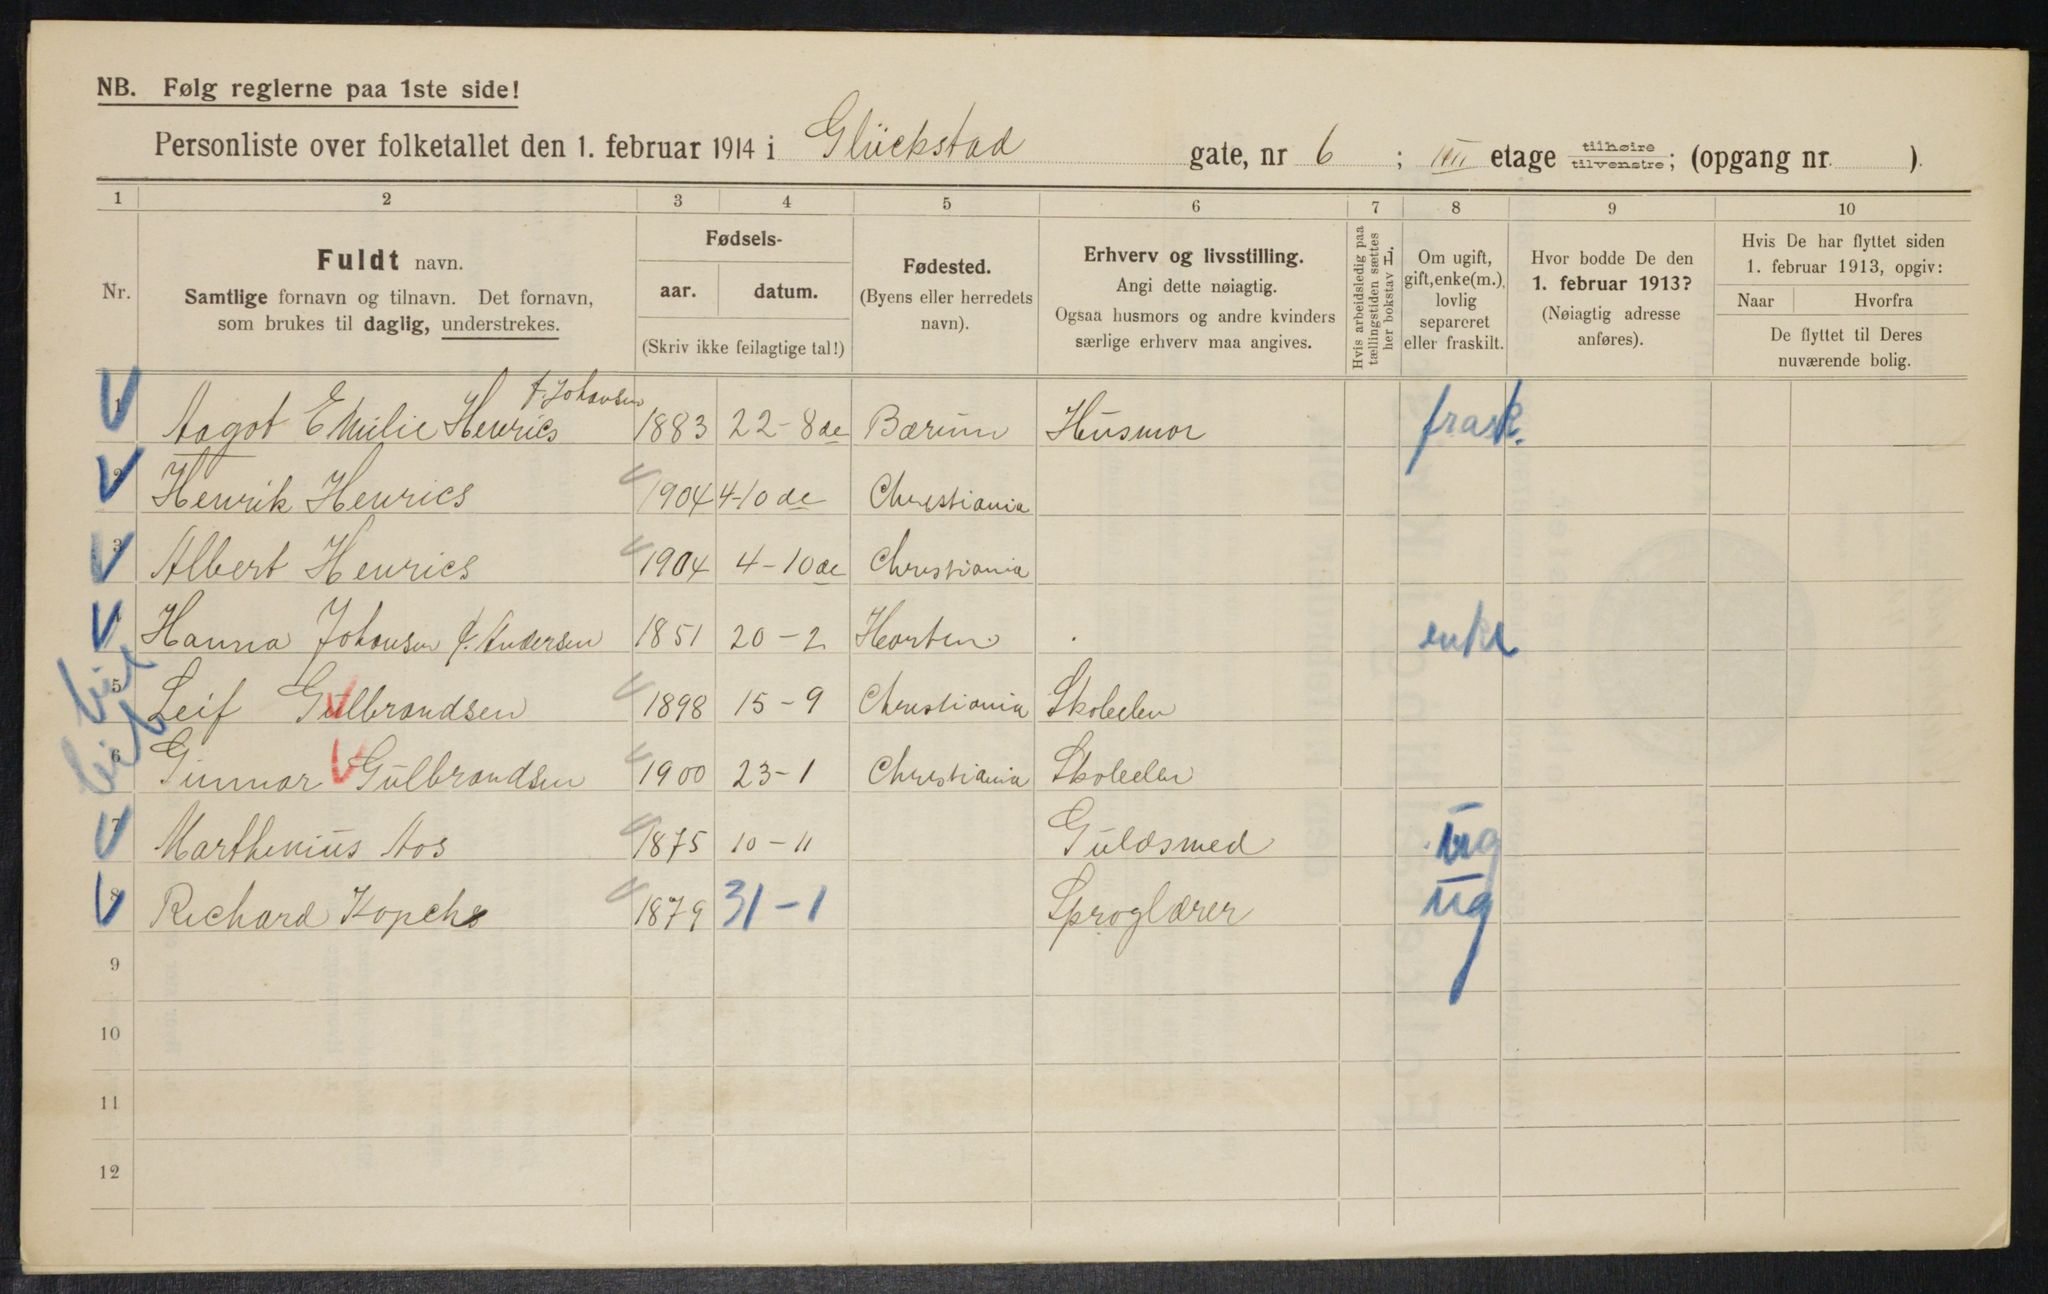 NB. Følg reglerne paa 1ste side!
Personliste over folketallet den 1. februar 1914 i Glückstad gate, nr 6 ; etage tilhøire tilvenstre; (opgang nr. ).
1 2 3 4 5 6 7 8 9 10
Nr.
Fuldt navn.
Samtlige fornavn og tilnavn. Det fornavn,
som brukes til daglig, understrekes.
Fødsels-
aar. datum.
(Skriv ikke feilagtige tal!)
Fødested.
(Byens eller herredets
navn).
Erhverv og livsstilling.
Angi dette nøiagtig.
Ogsaa husmors og andre kvinders
særlige erhverv maa angives.
Hvis arbeidsledig paa
tællingstiden sættes
her bokstav L.
Om ugift,
gift, enke(m.),
lovlig
separeret
eller fraskilt.
Hvor bodde De den
1. februar 1913?
(Nøiagtig adresse
anføres).
Hvis De har flyttet siden
1. februar 1913, opgiv:
Naar Hvorfra
De flyttet til Deres
nuværende bolig.
1 Aagot Emilie Henrics f. Johansen 1883 22-8de Bærum Husmor frask.
2 Henrik Henrics 1904 4-10de Christiania
3 Albert Henrics 1904 4-10de Christiania
4 Hanna Johansen f. Andersen 1851 20-2 Horten enke
5 Leif Gulbrandsen 1898 15-9 Christiania Skoleelev
6 Gunnar Gulbrandsen 1900 23-1 Christiania Skoleelev
7 Marthenius Aos 1875 10-11 Guldsmed ug
8 Richard 1879 31-1 Sproglærer ug
9
10
11
12